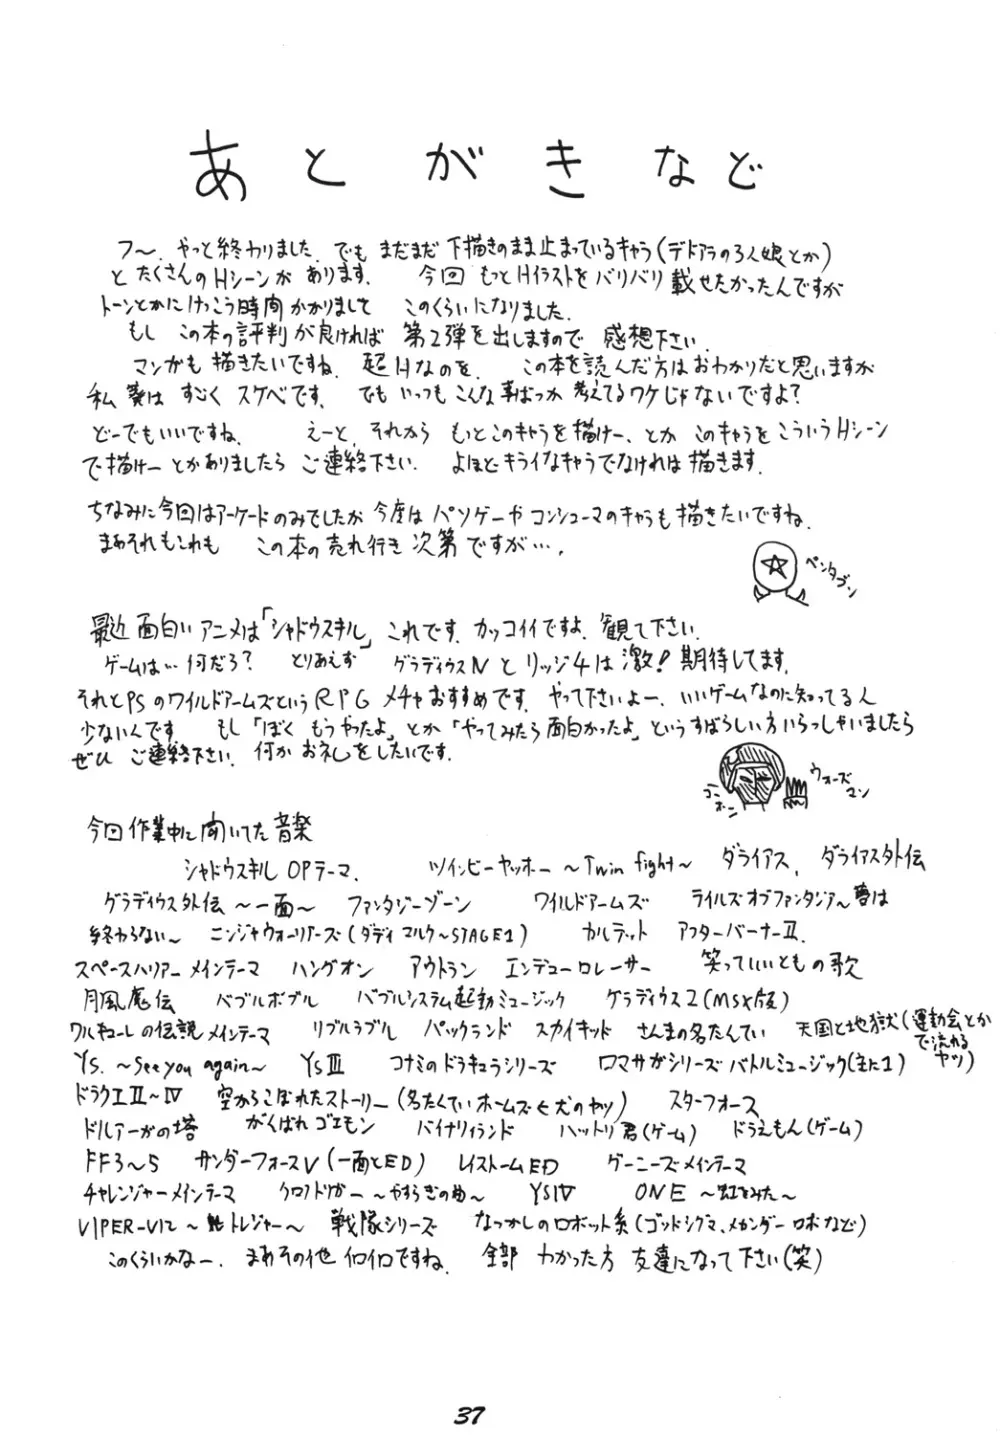 あとがきなど
フ〜、やっと終わりました。でも まだまだ 下描きのまま止まっているキャラ(デドアラの3人娘とか)
と たくさんのHシーンが あります。 今回 もっとHイラストを バリバリ 載せたかったんですが
トーンとかに けっこう時間 かかりまして このくらいになりました。
もし この本の評判が良ければ 第2弾を出しますので 感想下さい。
マンガも 描きたいですね。超Hなのを。 この本を読んだ方は おわかりだと思いますが
私 葵は すごく スケベです。 でも いっつも こんな事ばっか 考えてるワケじゃないですよ?
どーでもいいですね。 えーと、それから もっとこのキャラを描けー、とか このキャラを こういうHシーン
で描けー とかありましたら ご連絡下さい。 よほど キライなキャラでなければ 描きます。
ちなみに今回はアーケードのみでしたが 今度は パソゲーや コンシューマのキャラも 描きたいですね。
まあそれもこれも この本の売れ行き 次第ですが…。
ペンタゴン
最近 面白い アニメは「シャドウスキル」これです。カッコイイですよ。観て下さい。
ゲームは… 何だろ? とりあえず グラディウスⅣと リッジ4は 激!期待してます。
それとPSの ワイルドアームズという RPG メチャおすすめです。やって下さいよー、いいゲームなのに知ってる人
少ないんです。 もし「ぼく もうやったよ」とか「やってみたら 面白かったよ」というすばらしい方 いらっしゃいましたら
ぜひ ご連絡下さい。何か お礼をしたいです。
コーホー
ウォーズマン
今回 作業中に聞いてた音楽
シャドウスキル OPテーマ、 ツインビーヤッホー 〜Twin fight〜 ダライアス、 ダライアス外伝
グラディウス外伝 〜一面〜 ファンタジーゾーン ワイルドアームズ テイルズオブファンタジア〜夢は
終わらない〜 ニンジャウォーリアーズ(ダディ マルク〜STAGE1) カルテット アフターバーナーⅡ、
スペースハリアー メインテーマ ハングオン アウトラン エンデューロレーサー 笑っていいともの歌
月風魔伝 バブルボブル バブルシステム起動ミュージック グラディウス2(MSX版)
ワルキューレの伝説 メインテーマ リブルラブル パックランド スカイキッド さんまの名たんてい 天国と地獄(運動会とか
で流れる
ヤツ)
Ys. 〜See you again〜 YsⅢ コナミのドラキュラシリーズ ロマサガシリーズ バトルミュージック(主に1)
ドラクエⅡ〜Ⅳ 空からこぼれたストーリー(名たんてい ホームズ 犬のヤツ) スターフォース
ドルアーガの塔 がんばれゴエモン バイナリィランド ハットリ君(ゲーム) ドラえもん(ゲーム)
FF3〜5 サンダーフォースⅤ(一面とED) レイストームED グーニーズメインテーマ
チャレンジャーメインテーマ クロノトリガー 〜やすらぎの曲〜 YSⅣ ONE 〜虹をみた〜
VIPER-V12 〜 トレジャー〜 戦隊シリーズ なつかしのロボット系(ゴッドシグマ、メカンダーロボなど)
このくらいかなー、 まあその他 イロイロですね。 全部 わかった方 友達になって下さい(笑)
37